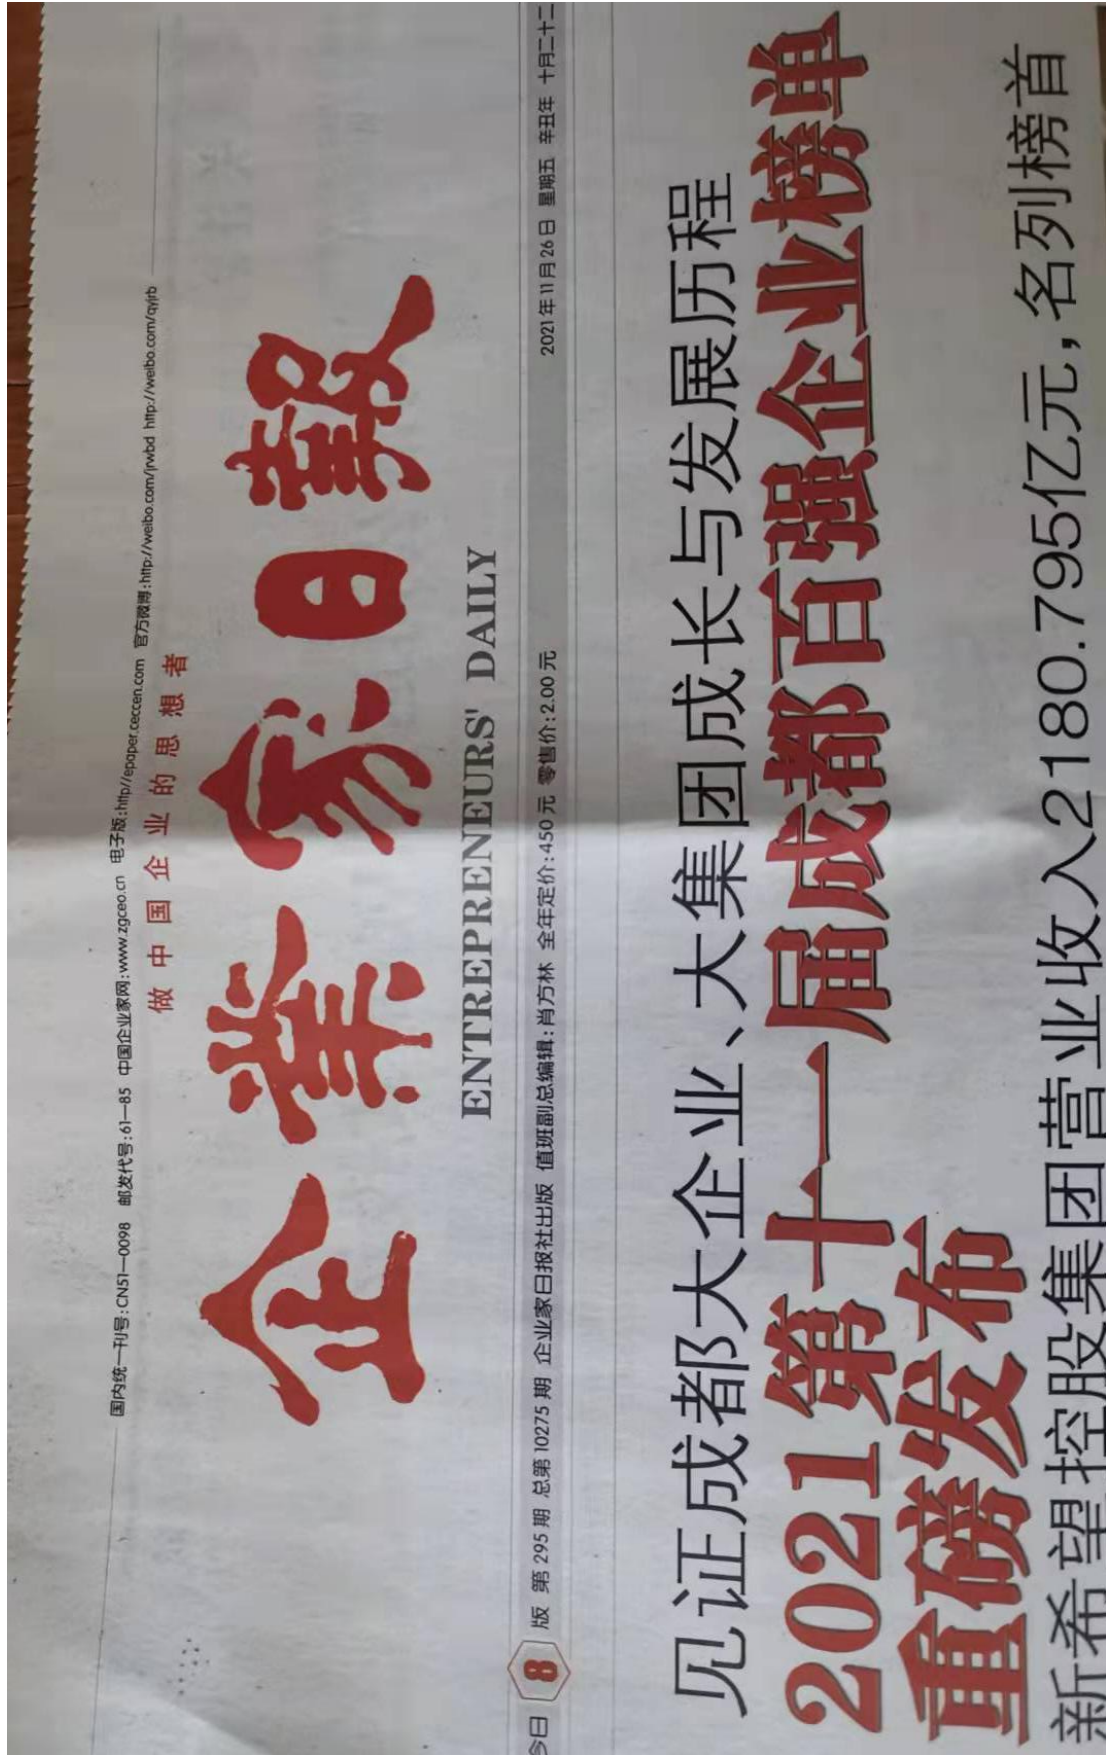 国内统一刊号:CN51—0098 邮发代号:61—85 中国企业家网:www.zgceo.cn 电子版:http//epaper.ceccen.com 官方微博:http://weibo.com/jrwbd http://weibo.com/qyjrb
做中国企业的思想者
企業家日報
ENTREPRENEURS' DAILY
今日 8 版 第295期 总第10275期 企业家日报社出版 值班副总编辑:肖方林 全年定价:450元 零售价:2.00元 2021年11月26日 星期五 辛丑年 十月二十二
见证成都大企业、大集团成长与发展历程
2021第十一届成都百强企业榜单
重磅发布
新希望控股集团营业收入2180.795亿元,名列榜首